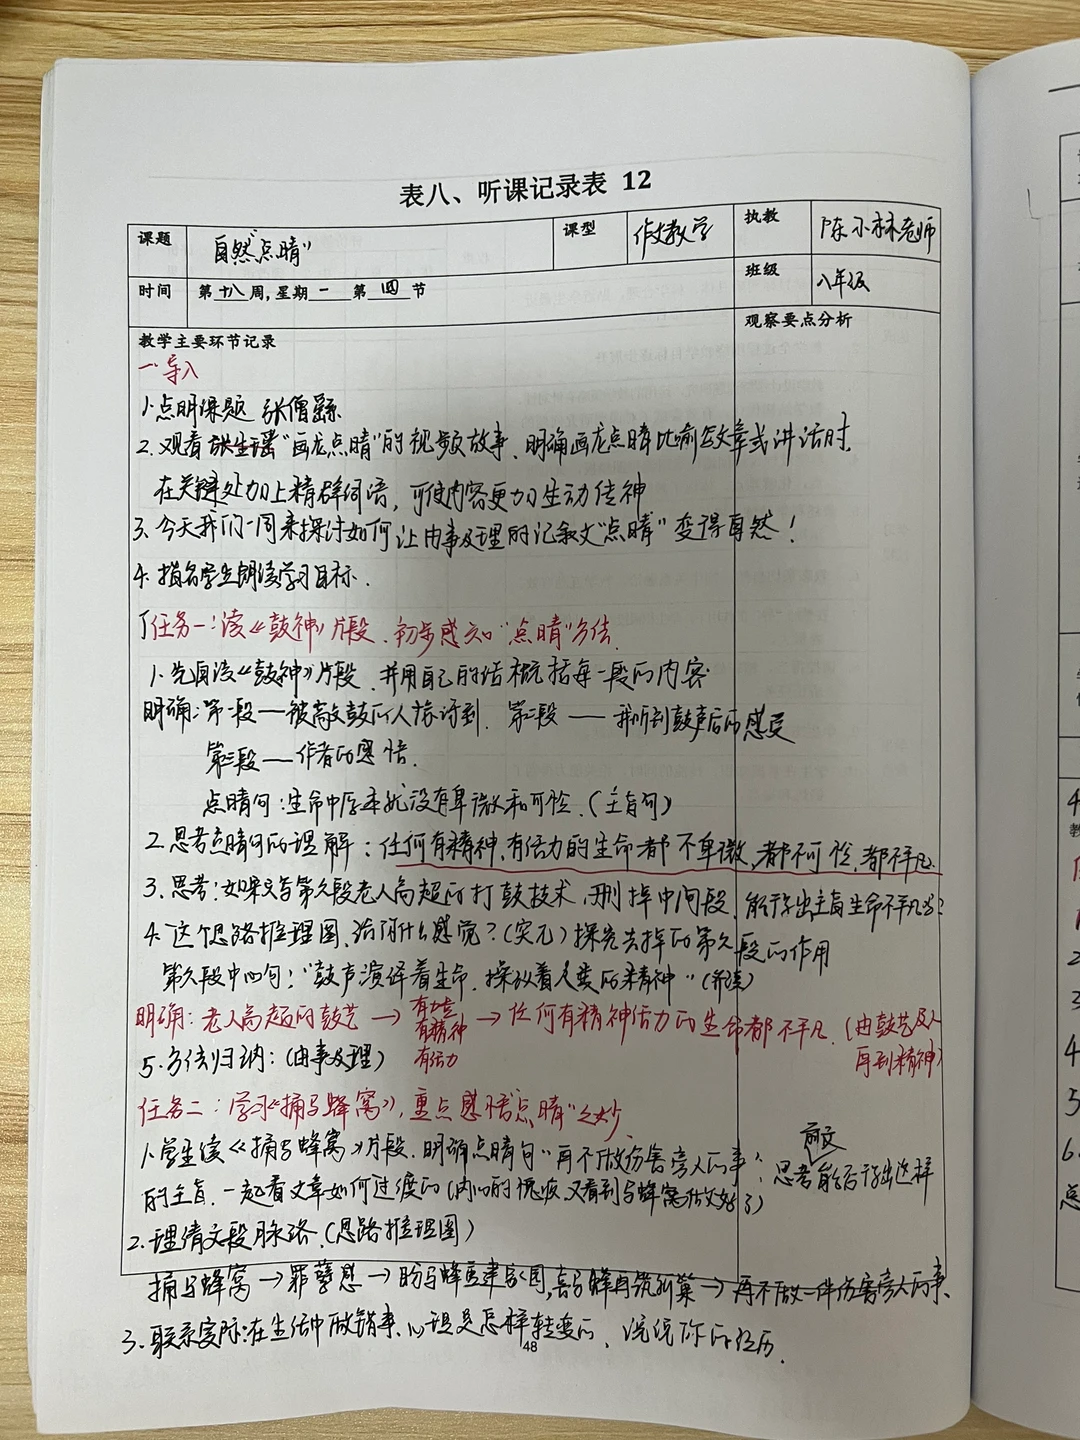 表八、听课记录表 12
课题 自然“点晴” 课型 作文教学 执教 陈小林老师
时间 第十八周,星期一 第四节 班级 八年级
教学主要环节记录 观察要点分析
一导入
1.点明课题 张僧繇
2.观看“画龙点晴”的视频故事、明确画龙点睛比喻在文章或讲话时,
在关键处加上精辟词语,可使内容更加生动传神
3.今天我们一同来探讨如何让由事及理的记叙文“点睛”变得自然!
4.指名学生朗读学习目标.
任务一:读《鼓神》片段、初步感知“点晴”方法.
1.先自读《鼓神》片段、并用自己的话概括每一段的内容
明确:第一段——被敲鼓的人惊讶到. 第二段——我听到鼓声后的感受
第三段——作者的感悟.
点睛句:生命中原本就没有卑微和可怜.(主旨句)
2.思考点睛句的理解:任何有精神、有活力的生命都不卑微、都不可怜、都不平凡.
3.思考:如果文与第久段老人高超的打鼓技术、删掉中间段、能否导出主旨生命不平凡书?
4.这个思路推理图、给你什么感觉?(突兀)探究去掉的第久段的作用
第久段中心句:“鼓声演绎着生命、操纵着人类的精神”(齐读)
明确:老人高超的鼓艺→有力量 有精神 有活力→任何有精神活力的生命都不平凡.(由鼓艺及人 再到精神)
5.方法归纳:(由事及理)
任务二:学习《捅马蜂窝》,重点感悟“点睛”之妙.
1.学生读《捅马蜂窝》片段、明确点睛句“再不做伤害旁人的事”;思考前文能否导出这样
的主旨、一起看文章如何过渡的(内心的愧疚、又看到马蜂窝依然好了)
2.理清文段脉络.(思路推理图)
捅马蜂窝→罪孽感→盼马蜂重建家园,喜马蜂再筑新巢→再不做一件伤害旁人的事.
3.联系实际:在生活中做错事、心理是怎样转变的、说说你的经历.
48